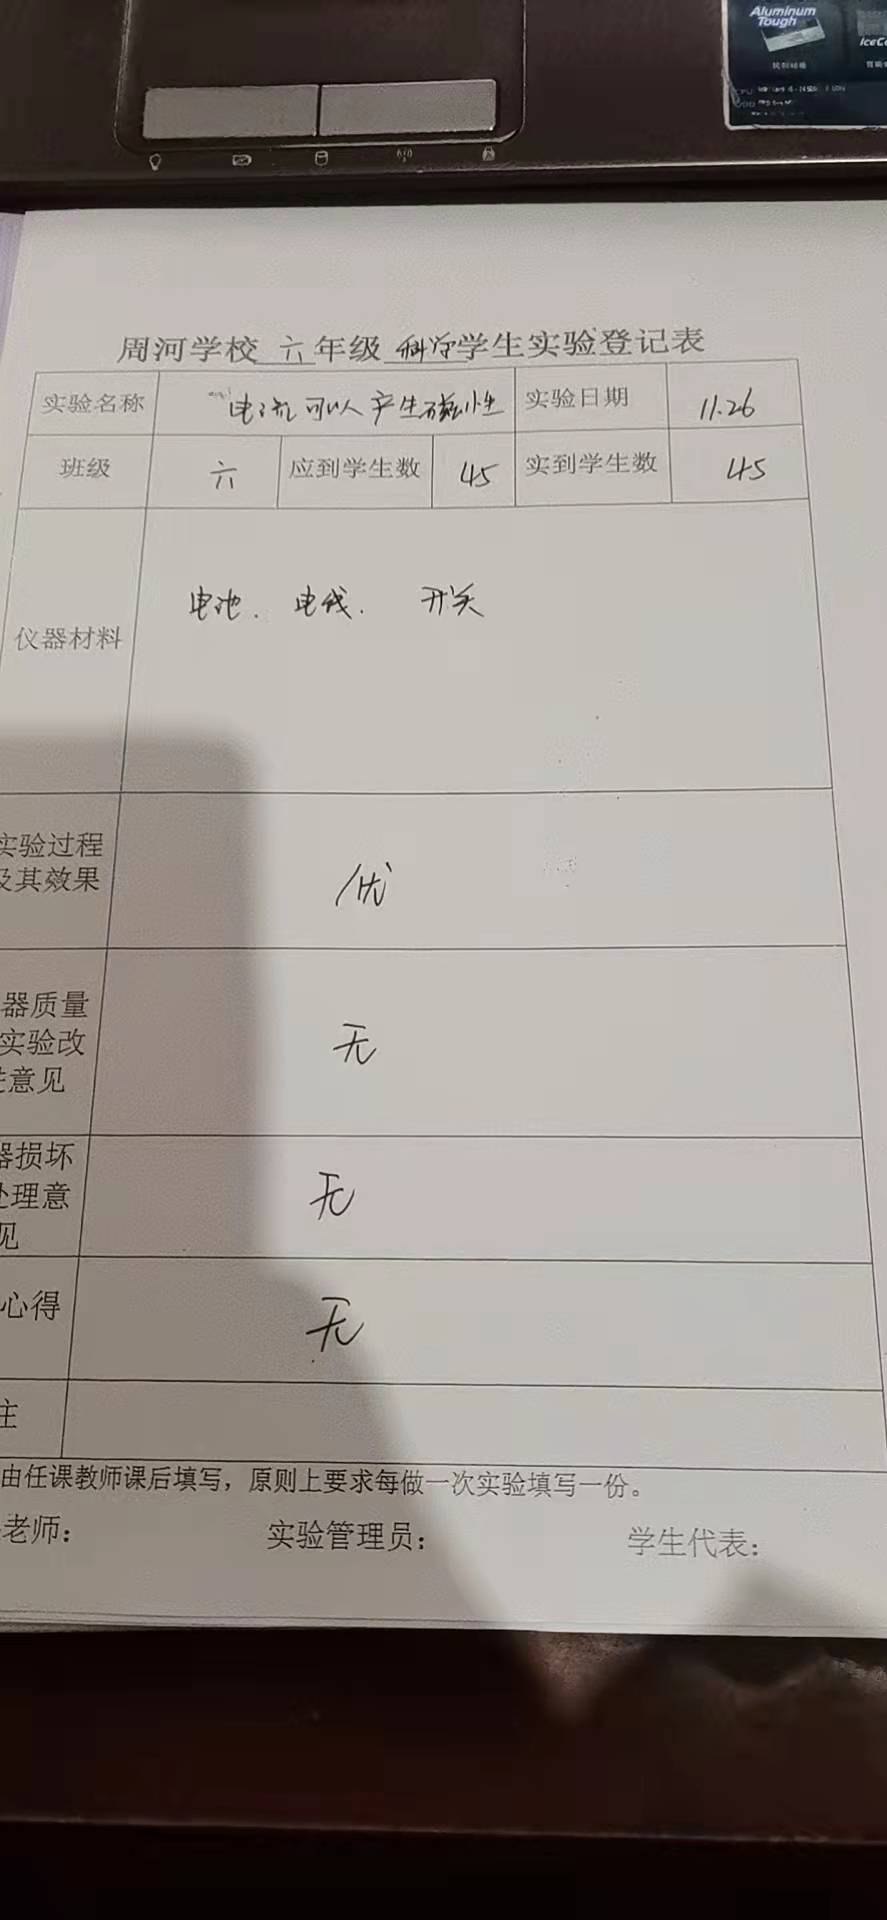 Aluminum
Tough
IceCo
周河学校 六 年级 科学 学生实验登记表
实验名称 电流可以产生磁性 实验日期 11.26
班级 六 应到学生数 45 实到学生数 45
仪器材料 电池. 电线. 开关
实验过程
及其效果 优
器质量
实验改
意见 无
器损坏
处理意
见 无
心得 无
注
由任课教师课后填写，原则上要求每做一次实验填写一份。
老师： 实验管理员： 学生代表：